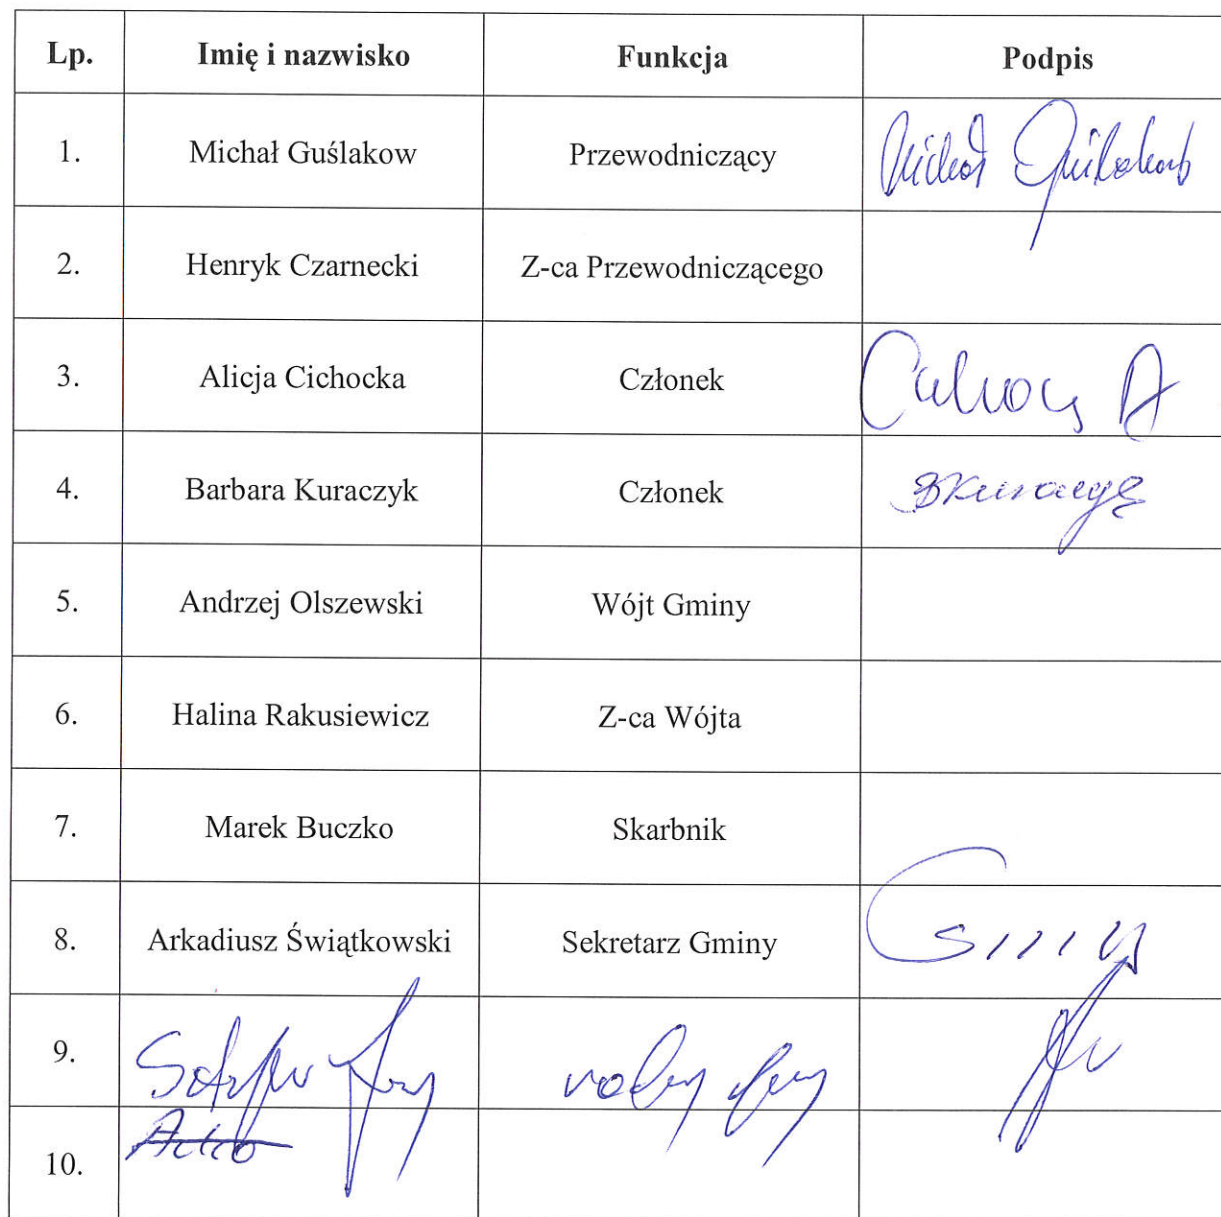 Lp. Imię i nazwisko Funkcja Podpis
1. Michał Guślakow Przewodniczący Michał Guślakow
2. Henryk Czarnecki Z-ca Przewodniczącego
3. Alicja Cichocka Członek
4. Barbara Kuraczyk Członek
5. Andrzej Olszewski Wójt Gminy
6. Halina Rakusiewicz Z-ca Wójta
7. Marek Buczko Skarbnik
8. Arkadiusz Świątkowski Sekretarz Gminy
9.
10.